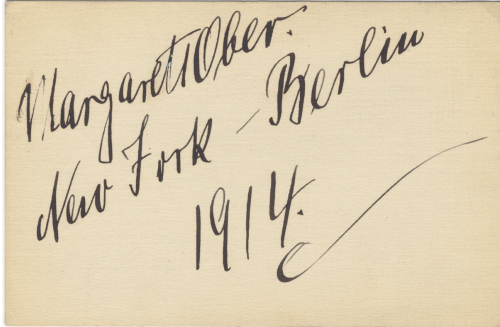 Margarete Ober.
New York - Berlin
1914.